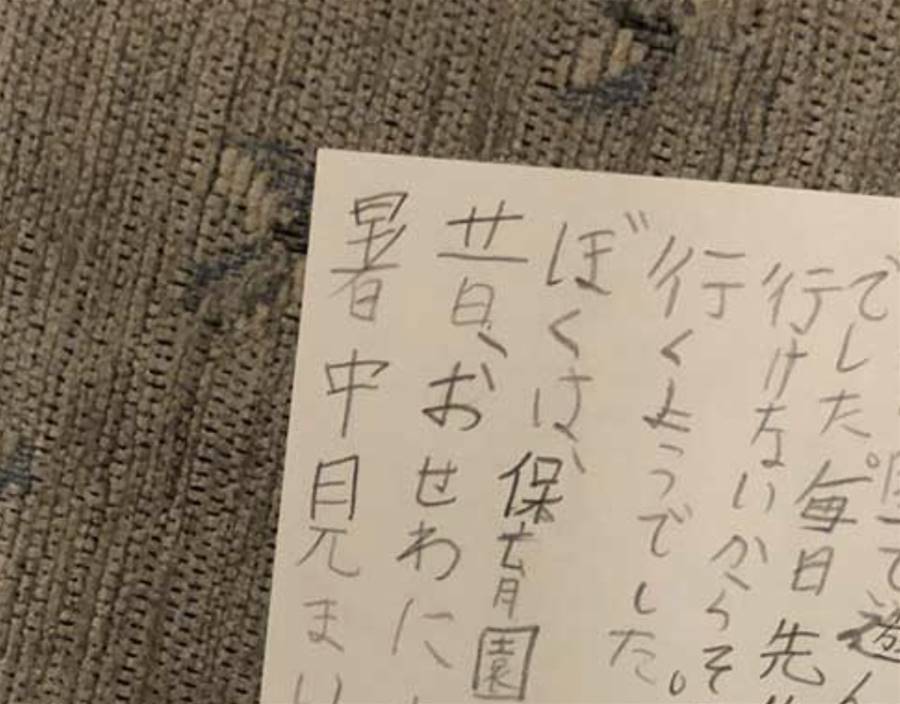 暑中見まい
昔、おせわに
ぼくは、保育園
行くようでした。
行けないからそ
でした。毎日先
で遊ん